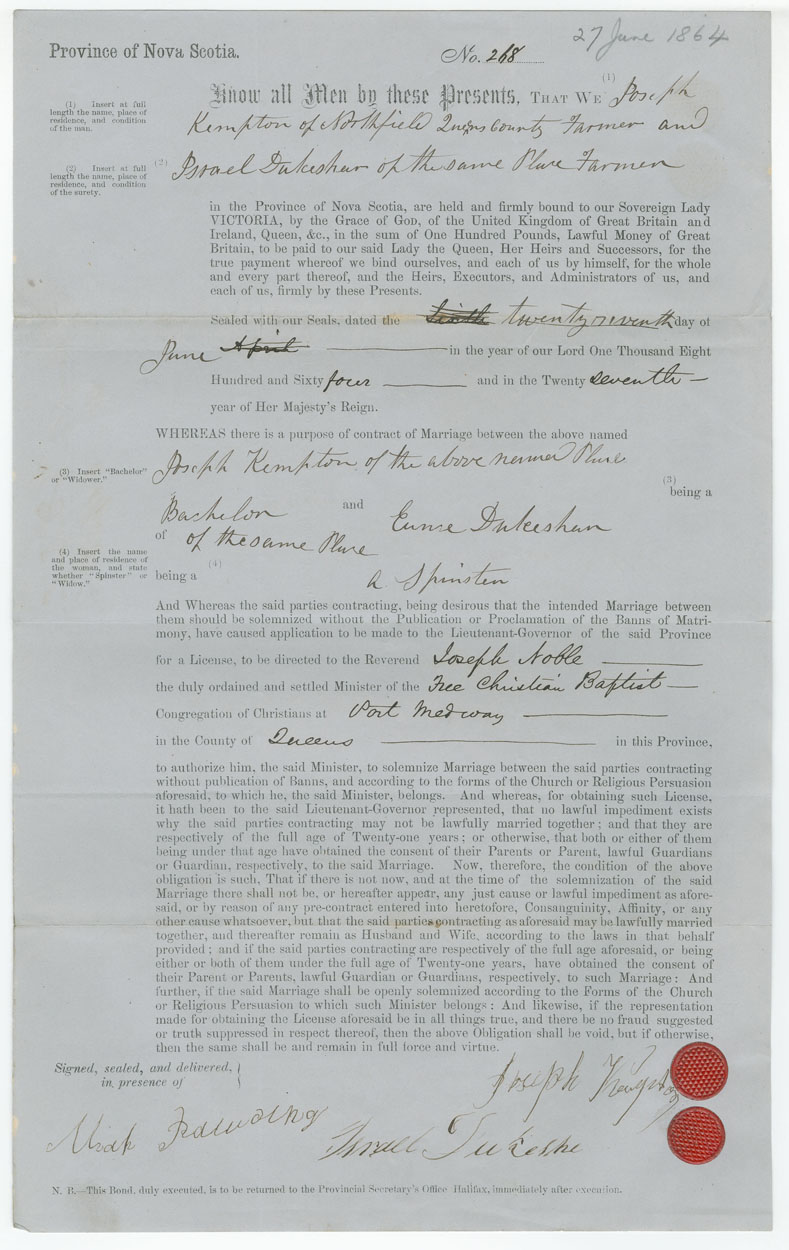 27 June 1864
Province of Nova Scotia.
No. 268
(1) Insert at full length the name, place of residence, and condition of the man.
Know all Men by these Presents, THAT WE (1) Joseph
Kempton of Northfield Queens County Farmer and
(2) Insert at full length the name, place of residence, and condition of the surety.
(2) Israel Dukeshar of the same Place Farmer
in the Province of Nova Scotia, are held and firmly bound to our Sovereign Lady
VICTORIA, by the Grace of GOD, of the United Kingdom of Great Britain and
Ireland, Queen, &c., in the sum of One Hundred Pounds, Lawful Money of Great
Britain, to be paid to our said Lady the Queen, Her Heirs and Successors, for the
true payment whereof we bind ourselves, and each of us by himself, for the whole
and every part thereof, and the Heirs, Executors, and Administrators of us, and
each of us, firmly by these Presents.
Sealed with our Seals, dated the twenty seventh day of
June April in the year of our Lord One Thousand Eight
Hundred and Sixty four and in the Twenty seventh
year of Her Majesty's Reign.
WHEREAS there is a purpose of contract of Marriage between the above named
(3) Insert "Bachelor" or "Widower."
Joseph Kempton of the above named Place
(3) being a
Bachelor and Eunice Dukeshar
of of the same Place
(4) Insert the name and place of residence of the woman, and state whether "Spinster" or "Widow."
being a (4) a Spinster
And Whereas the said parties contracting, being desirous that the intended Marriage between
them should be solemnized without the Publication or Proclamation of the Banns of Matri-
mony, have caused application to be made to the Lieutenant-Governor of the said Province
for a License, to be directed to the Reverend Joseph Noble
the duly ordained and settled Minister of the Free Christian Baptist
Congregation of Christians at Port Medway
in the County of Queens in this Province,
to authorize him, the said Minister, to solemnize Marriage between the said parties contracting
without publication of Banns, and according to the forms of the Church or Religious Persuasion
aforesaid, to which he, the said Minister, belongs. And whereas, for obtaining such License,
it hath been to the said Lieutenant-Governor represented, that no lawful impediment exists
why the said parties contracting may not be lawfully married together; and that they are
respectively of the full age of Twenty-one years; or otherwise, that both or either of them
being under that age have obtained the consent of their Parents or Parent, lawful Guardians
or Guardian, respectively, to the said Marriage. Now, therefore, the condition of the above
obligation is such, That if there is not now, and at the time of the solemnization of the said
Marriage there shall not be, or hereafter appear, any just cause or lawful impediment as afore-
said, or by reason of any pre-contract entered into heretofore, Consanguinity, Affinity, or any
other cause whatsoever, but that the said parties contracting as aforesaid may be lawfully married
together, and thereafter remain as Husband and Wife, according to the laws in that behalf
provided; and if the said parties contracting are respectively of the full age aforesaid, or being
either or both of them under the full age of Twenty-one years, have obtained the consent of
their Parent or Parents, lawful Guardian or Guardians, respectively, to such Marriage: And
further, if the said Marriage shall be openly solemnized according to the Forms of the Church
or Religious Persuasion to which such Minister belongs: And likewise, if the representation
made for obtaining the License aforesaid be in all things true, and there be no fraud suggested
or truth suppressed in respect thereof, then the above Obligation shall be void, but if otherwise,
then the same shall be and remain in full force and virtue.
Signed, sealed, and delivered,
in presence of
Joseph
Israel Dukeshe
N. B.—This Bond, duly executed, is to be returned to the Provincial Secretary's Office Halifax, immediately after execution.